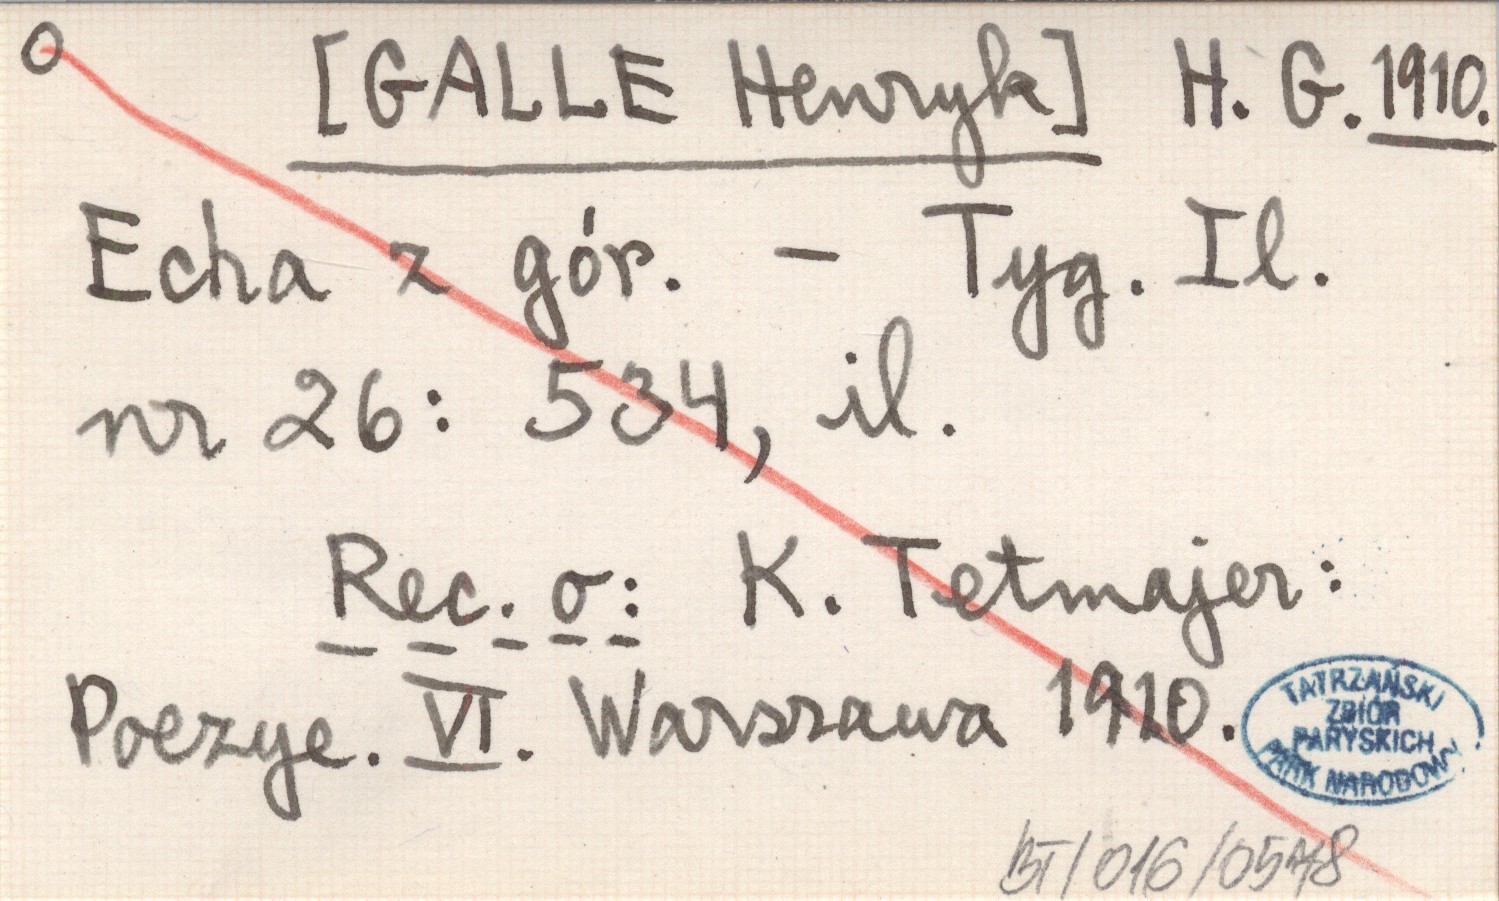 O [GALLE Henryk] H. G. 1910.
Echa z gór. – Tyg. Il.
nr 26: 534, il.
Rec. o: K. Tetmajer:
Poezye. VI. Warszawa 1910.
TATRZAŃSKI
ZBIÓR
PARYSKICH
PARK NARODOWY
BT/016/0578